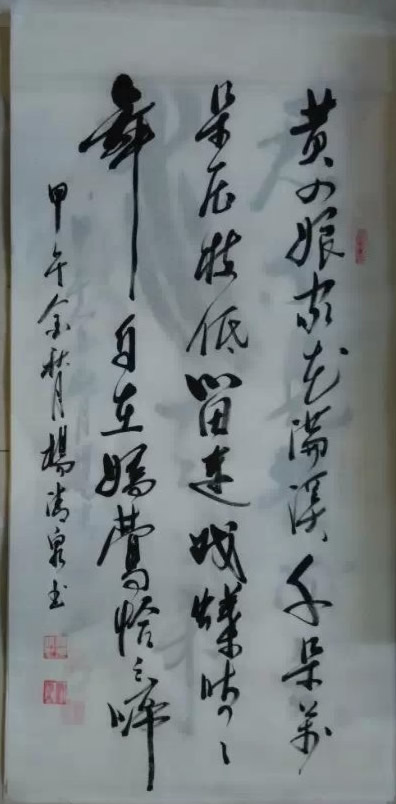 黄四娘家花满溪千朵万
朵压枝低留连戏蝶时々
舞自在娇莺恰々啼
甲午金秋月楊清泉书